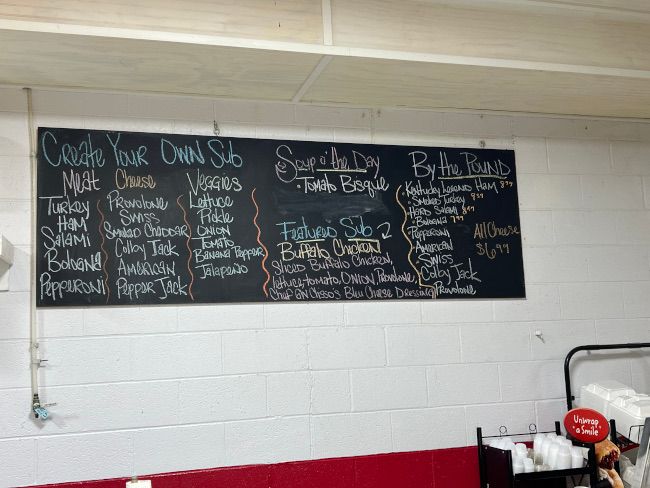 Create Your Own Sub
Meat
Turkey
Ham
Salami
Bologna
Pepperoni
Cheese
Provolone
Swiss
Smoked Cheddar
Colby Jack
American
Pepper Jack
Veggies
Lettuce
Pickle
Onion
Tomato
Banana Pepper
Jalapeno
Soup o' the Day
• Tomato Bisque
Featured Sub
Buffalo Chicken
Sliced Buffalo Chicken,
lettuce, tomato, onion, Provolone,
Bleu Cheese Dressing
By the Pound
Kentucky Legend Ham
• Smoked Turkey
Hard Salami
• Bologna
Pepperoni
American
Swiss
Colby Jack
Provolone
All Cheese
$6.99
Unwrap
a Smile